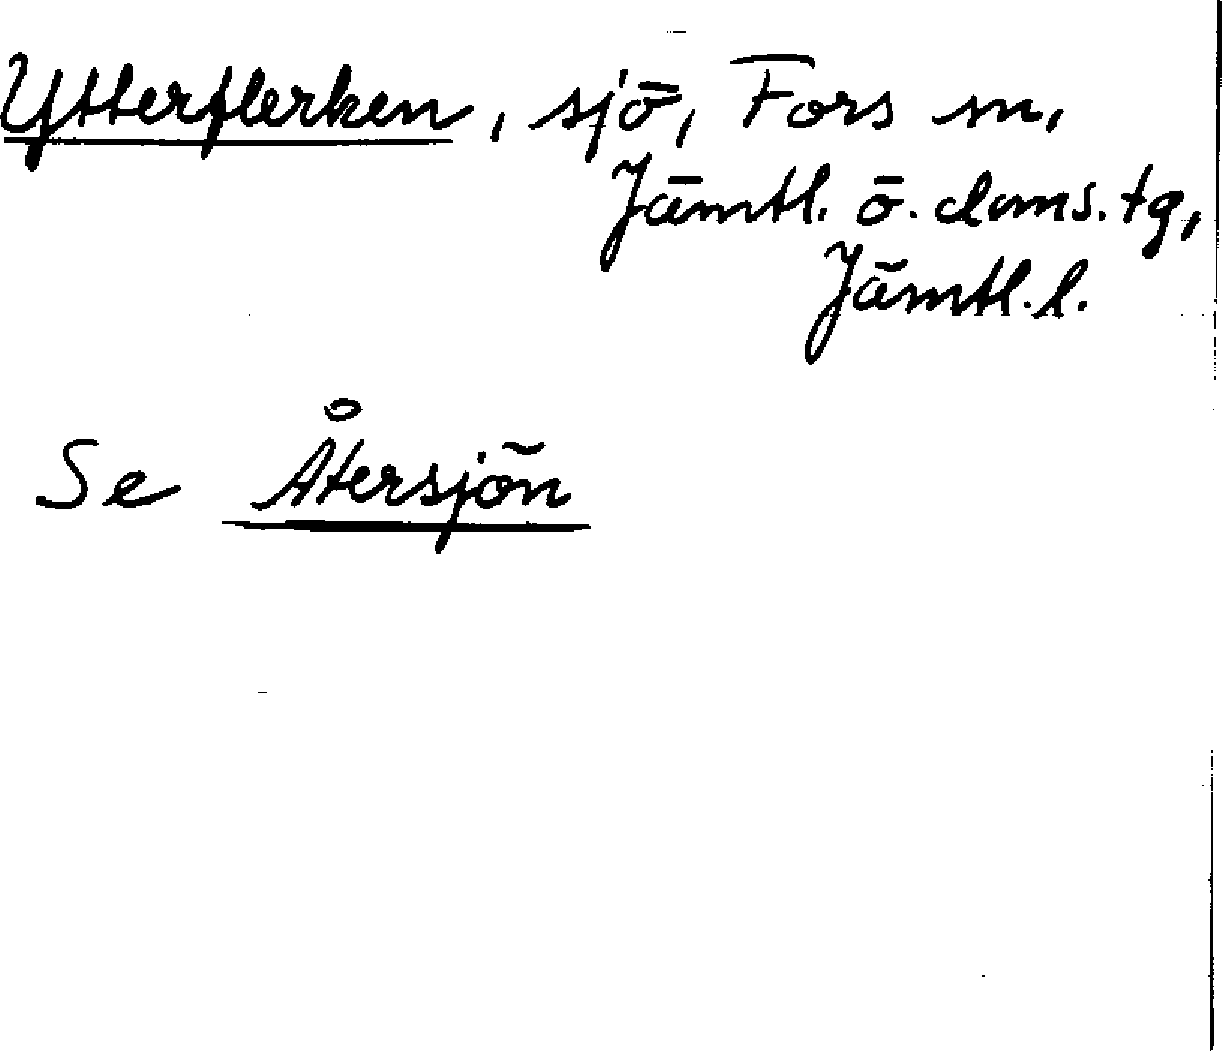 Ytterflerken, sjö, Fors sn,
Jämtl. ö. doms. tg,
Jämtl. l.
Se Återsjön